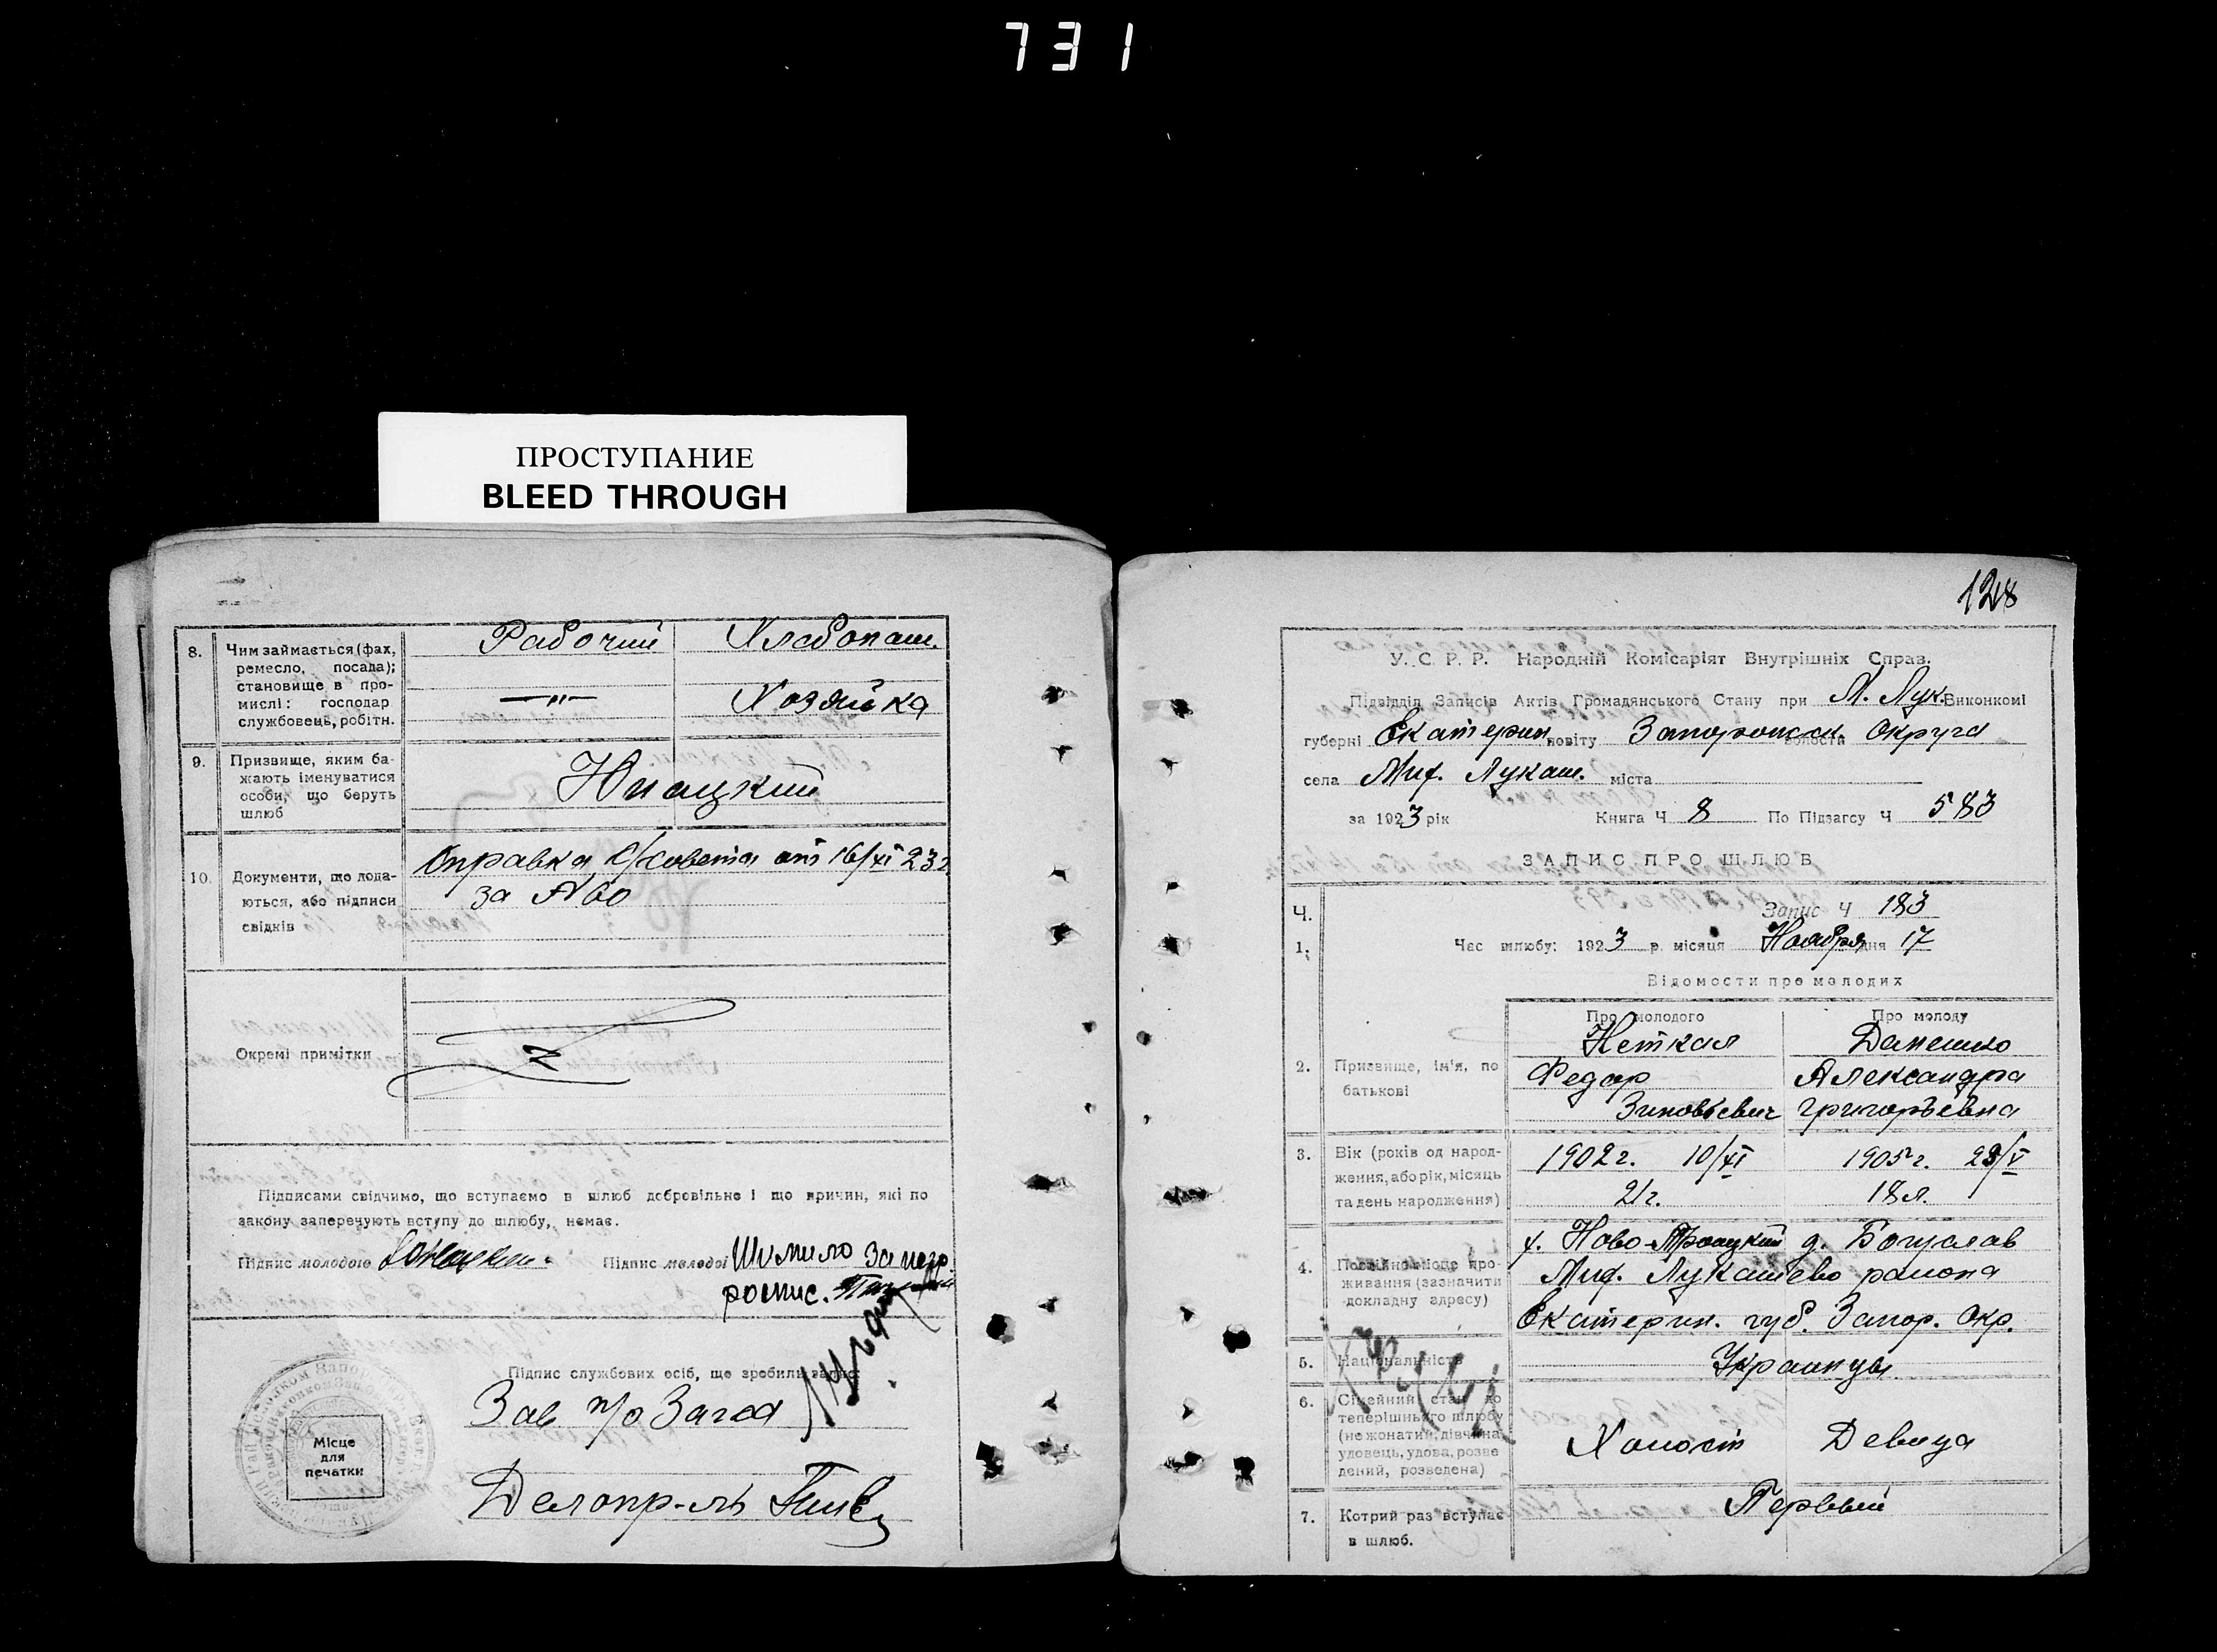 731
ПРОСТУПАНИЕ
BLEED THROUGH
8. Чим займається (фах,
ремесло, посада);
становище в про-
мислі: господар
службовець, робітн.
Рабочий Хлебопаш.
—"— Хозяйка
9. Призвище, яким ба-
жають іменуватися
особи, що беруть
шлюб
10. Документи, що дода-
ються, або підписи
свідків
Справка С/совета от 16/XI 23 г
за № 60
Окремі примітки
Z
Підписами свідчимо, що вступаємо в шлюб добровільно і що причин, які по
закону заперечують вступу до шлюбу, немає.
Підпис молодого
Підпис молодої Шумило за негр.
роспис.
Підпис службових осіб, що зробили запис:
Зав п/о Загса
Місце
для
печатки
Делопр-ль
128
У. С. Р. Р. Народній Комісаріят Внутрішніх Справ.
Підвідділ Записів Актів Громадянського Стану при М. Лук. Виконкомі
губерні Екатерин. повіту Запорожск. волости Округа
села Миф. Лукаш. міста
за 1923 рік Книга Ч 8 По Підзагсу Ч 583
ЗАПИС ПРО ШЛЮБ
Ч. Запис Ч 183
1. Час шлюбу: 1923 р. місяця Ноября дня 17
Відомости про молодих
Про молодого Про молоду
2. Призвище, ім'я, по
батькові
Федор Александра
Зиновьевич Григорьевна
3. Вік (років од народ-
ження, або рік, місяць
та день народження)
1902 г. 10/XI 1905 г. 23/V
21 г. 18 л.
4. Постійно місце про-
живання (зазначити
докладну адресу)
х. Ново-Троицкий д. Богуслав
Миф. Лукашево района
Екатерин. губ. Запор. Окр.
5. Національність
Украинцы
6. Сімейний стан до
теперішнього шлюбу
(не жонатий, дівчина,
удовець, удова, розве
дений, розведена)
Холост Девица
7. Котрий раз вступає
в шлюб.
Первый